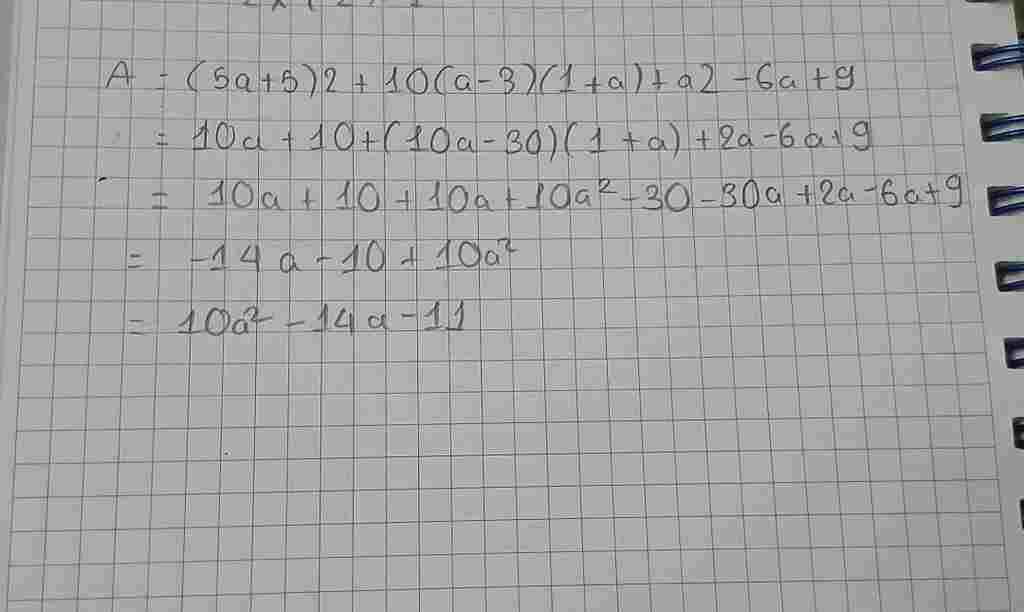 A = (5a+5)2 + 10(a-3)(1+a)+a2-6a+9
= 10a+10+(10a-30)(1+a)+2a-6a+9
= 10a+10+10a+10a²-30-30a+2a-6a+9
= -14a-10+10a²
= 10a²-14a-11